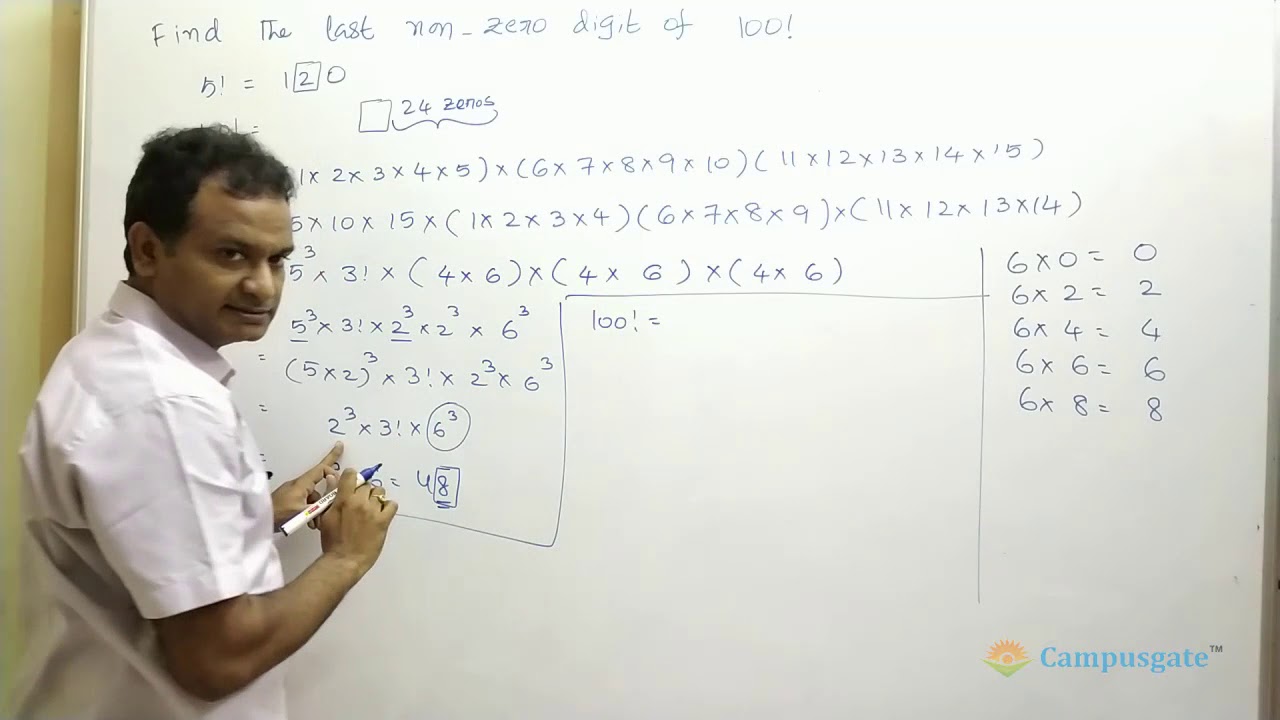 Find The last non-zero digit of 100!
5! = 120
24 zeros
1 × 2 × 3 × 4 × 5) × (6 × 7 × 8 × 9 × 10) (11 × 12 × 13 × 14 × 15)
5 × 10 × 15 × (1 × 2 × 3 × 4) (6 × 7 × 8 × 9) × (11 × 12 × 13 × 14)
5³ × 3! × (4 × 6) × (4 × 6) × (4 × 6)
5³ × 3! × 2³ × 2³ × 6³
= (5 × 2)³ × 3! × 2³ × 6³
= 2³ × 3! × 6³
= 48
100! =
6 × 0 = 0
6 × 2 = 2
6 × 4 = 4
6 × 6 = 6
6 × 8 = 8
Campusgate™